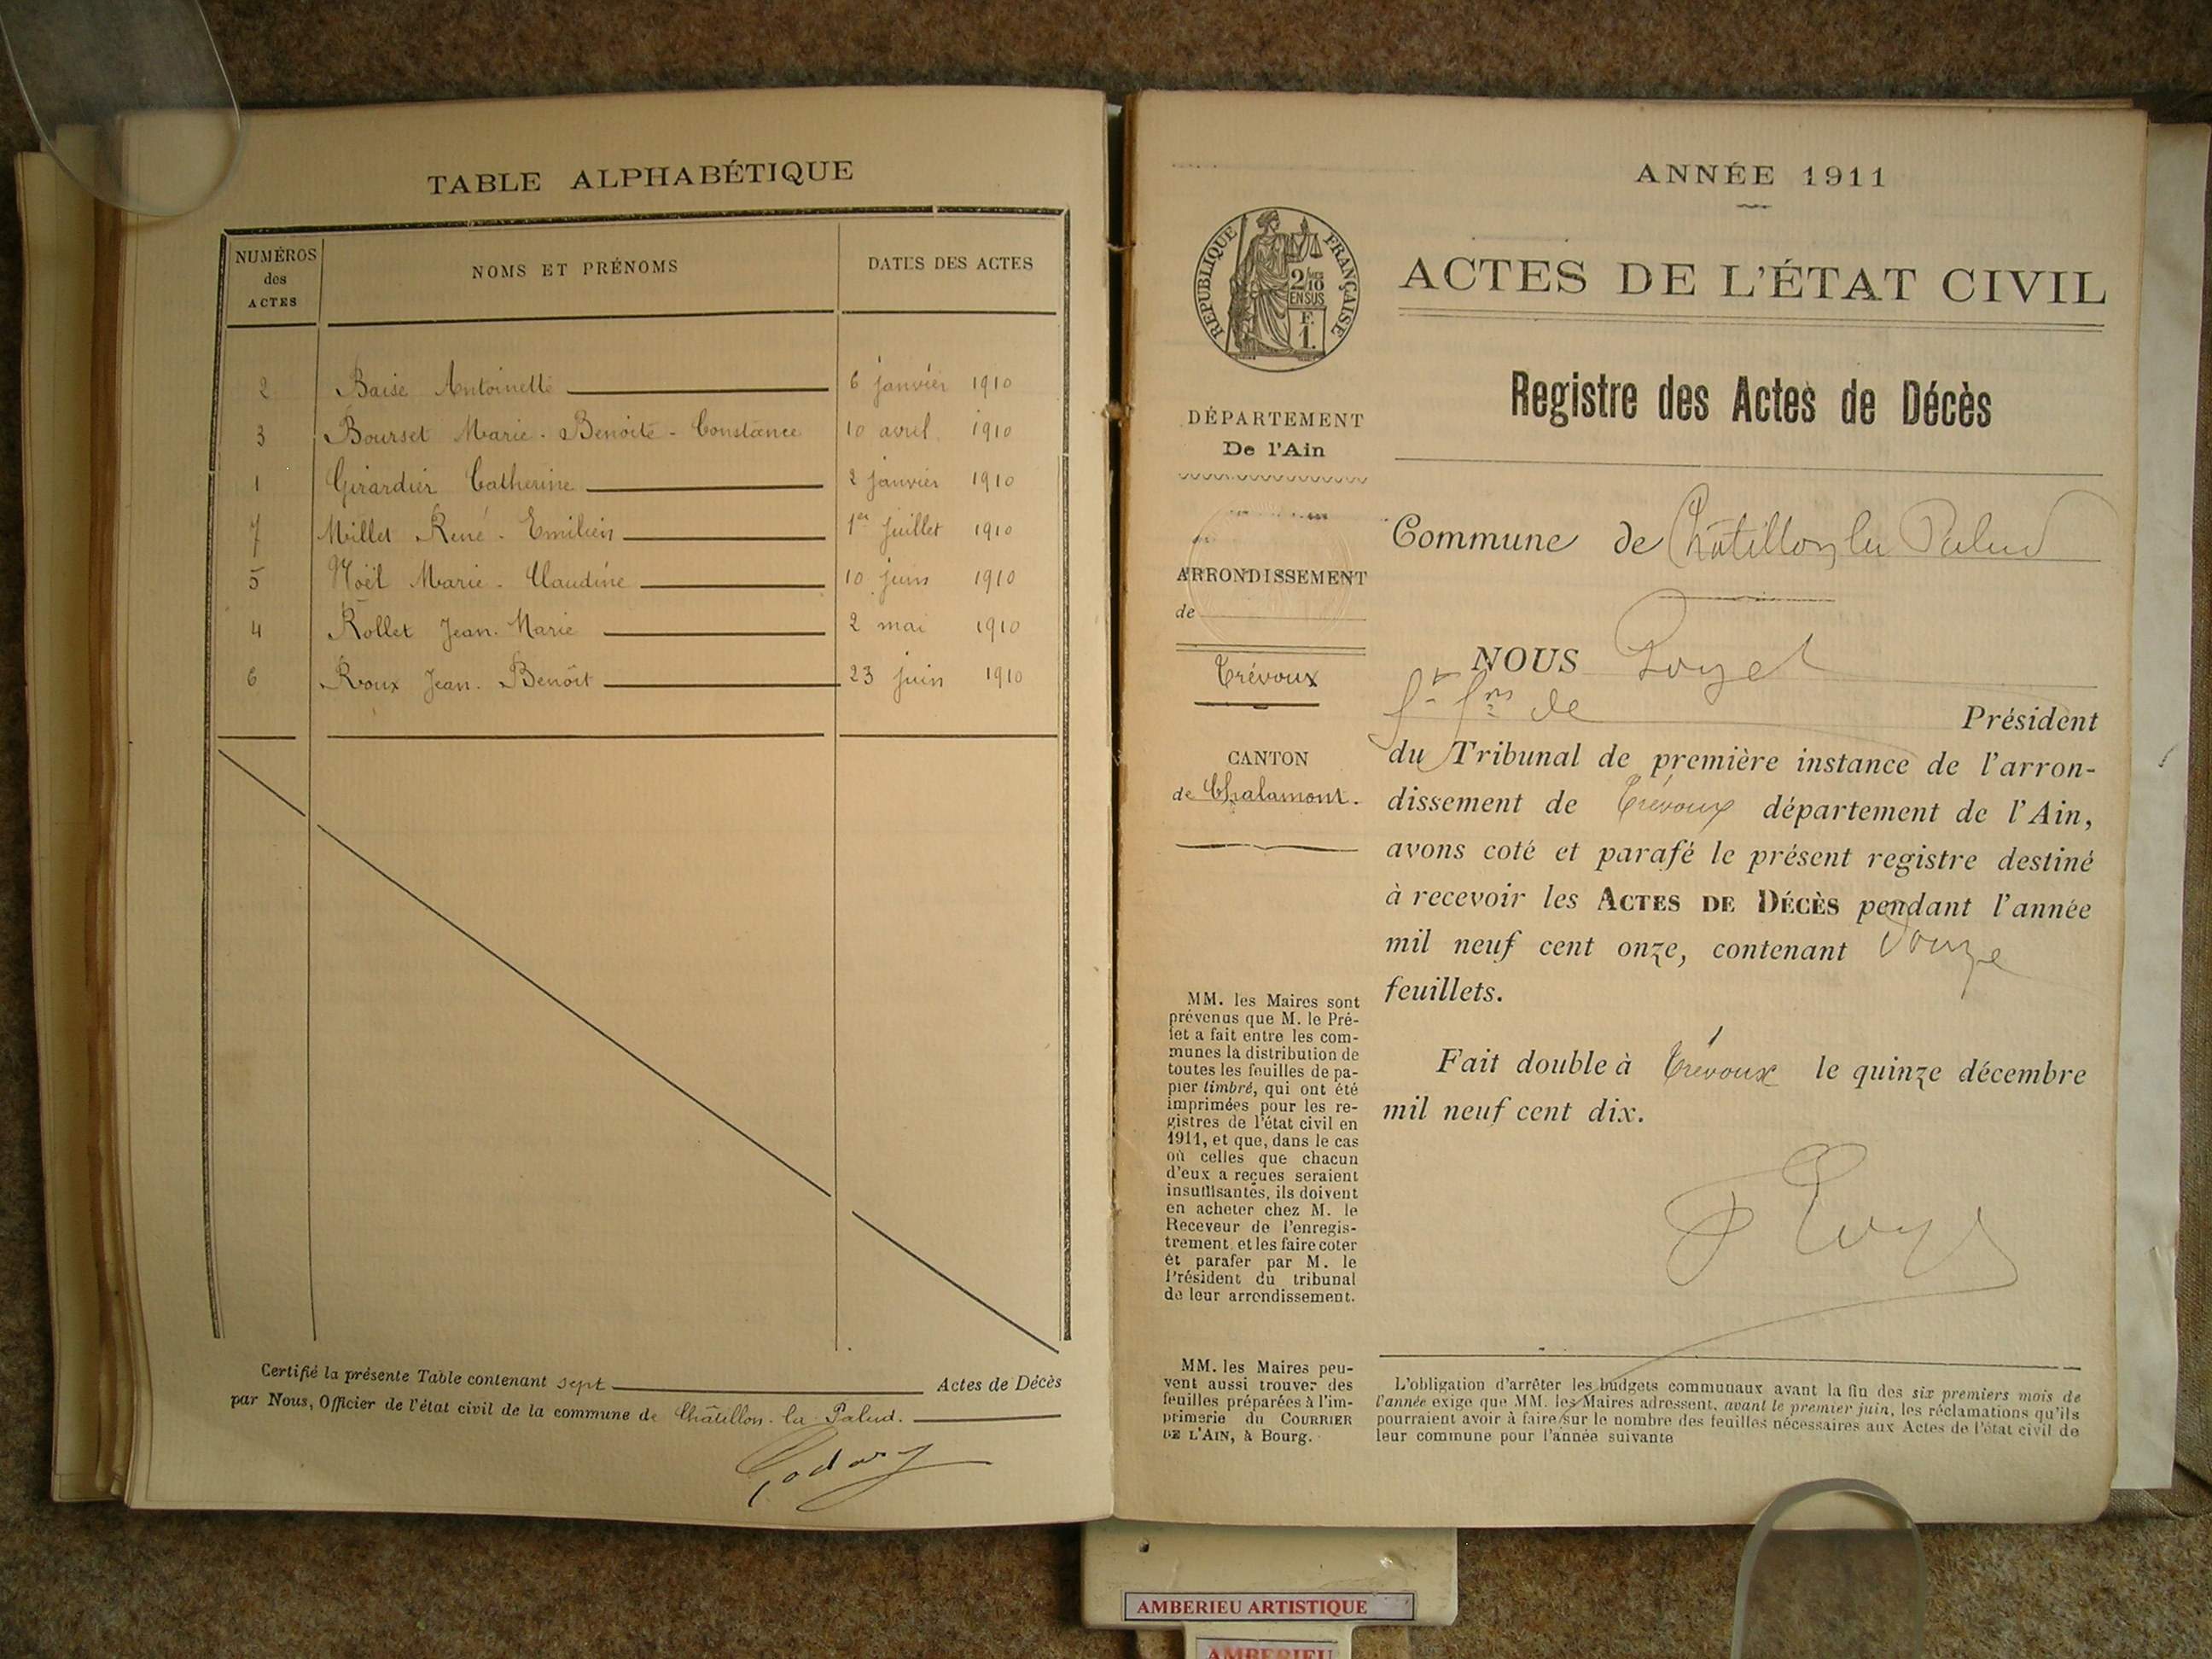 TABLE ALPHABÉTIQUE
NUMÉROS des ACTES
NOMS ET PRÉNOMS
DATES DES ACTES
2 Baise Antoinette 6 janvier 1910
3 Bourset Marie-Benoite-Constance 10 avril 1910
1 Girardier Catherine 2 janvier 1910
7 Millet René-Emilien 1er juillet 1910
5 Noël Marie-Claudine 10 juin 1910
4 Rollet Jean-Marie 2 mai 1910
6 Roux Jean-Benoit 23 juin 1910
Certifié la présente Table contenant sept Actes de Décès
par Nous, Officier de l'état civil de la commune de Châtillon-la-Palud.
ANNÉE 1911
RÉPUBLIQUE FRANÇAISE
2/10
EN SUS
F.
1.
ACTES DE L'ÉTAT CIVIL
Registre des Actes de Décès
DÉPARTEMENT
De l'Ain
ARRONDISSEMENT
de
Trévoux
CANTON
de Chalamont.
MM. les Maires sont
prévenus que M. le Pré-
fet a fait entre les com-
munes la distribution de
toutes les feuilles de pa-
pier timbré, qui ont été
imprimées pour les re-
gistres de l'état civil en
1911, et que, dans le cas
où celles que chacun
d'eux a reçues seraient
insuffisantes, ils doivent
en acheter chez M. le
Receveur de l'enregis-
trement et les faire coter
et parafer par M. le
Président du tribunal
de leur arrondissement.
MM. les Maires peu-
vent aussi trouver des
feuilles préparées à l'im-
primerie du COURRIER
DE L'AIN, à Bourg.
Commune de Châtillon la Palud
NOUS
de Président
du Tribunal de première instance de l'arron-
dissement de Trévoux département de l'Ain,
avons coté et parafé le présent registre destiné
à recevoir les ACTES DE DÉCÈS pendant l'année
mil neuf cent onze, contenant douze
feuillets.
Fait double à Trévoux le quinze décembre
mil neuf cent dix.
L'obligation d'arrêter les budgets communaux avant la fin des six premiers mois de
l'année exige que MM. les Maires adressent, avant le premier juin, les réclamations qu'ils
pourraient avoir à faire sur le nombre des feuilles nécessaires aux Actes de l'état civil de
leur commune pour l'année suivante
AMBERIEU ARTISTIQUE
AMBERIEU